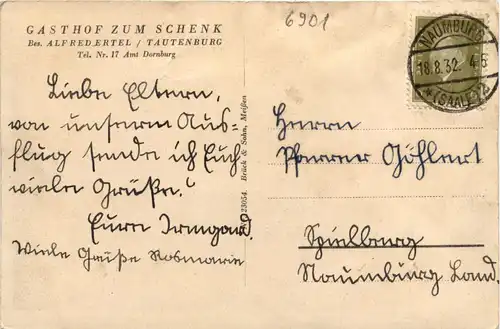 GASTHOF ZUM SCHENK
Bes. ALFRED ERTEL / TAUTENBURG
Tel. Nr. 17 Amt Dornburg
6901
NAUMBURG
18.8.32. 4-5
* (SAALE) 2
Liebe Eltern,
von unserem Aus-
flug sende ich Euch
viele Grüße.
Eure Irmgard.
Viele Grüße Rosmarie
23054. Brück & Sohn, Meißen
Herrn
Pfarrer Göhlert
Spielburg
Naumburg Land.